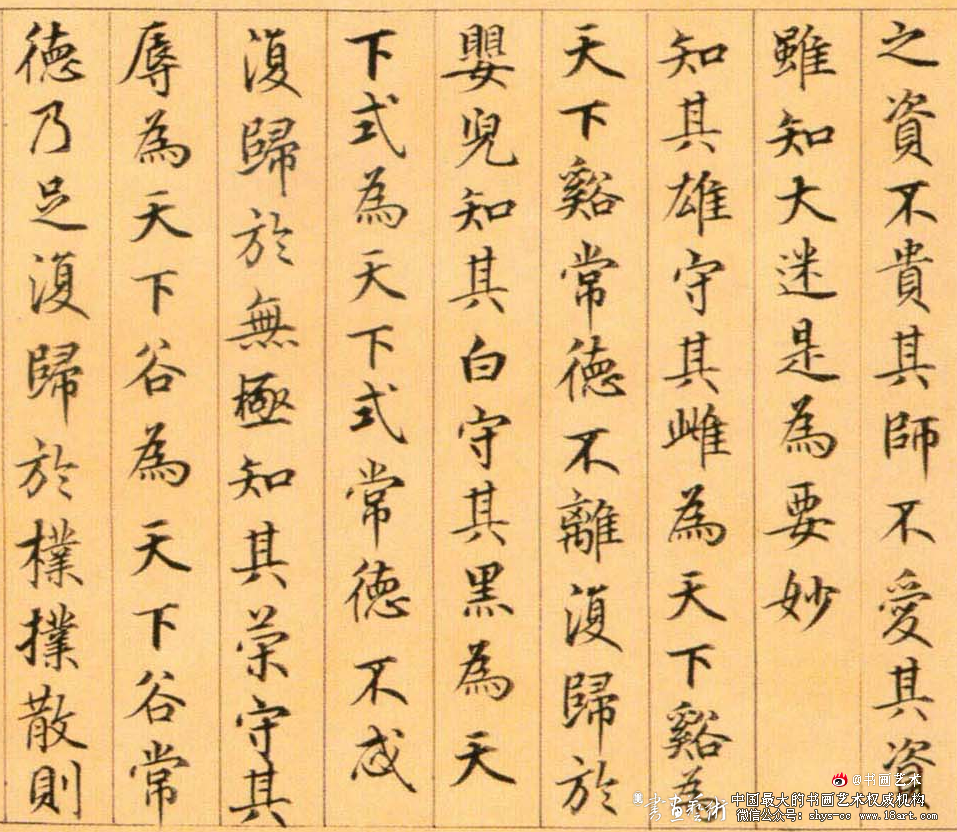 之資不貴其師不愛其資
雖知大迷是為要妙
知其雄守其雌為天下谿為
天下谿常徳不離復歸於
嬰兒知其白守其黑為天
下式為天下式常徳不忒
復歸於無極知其榮守其
辱為天下谷為天下谷常
徳乃足復歸於樸撲散則
@书画艺术
書画藝術
中国最大的书画艺术权威机构
微信公众号：shys-cc www.18art.com